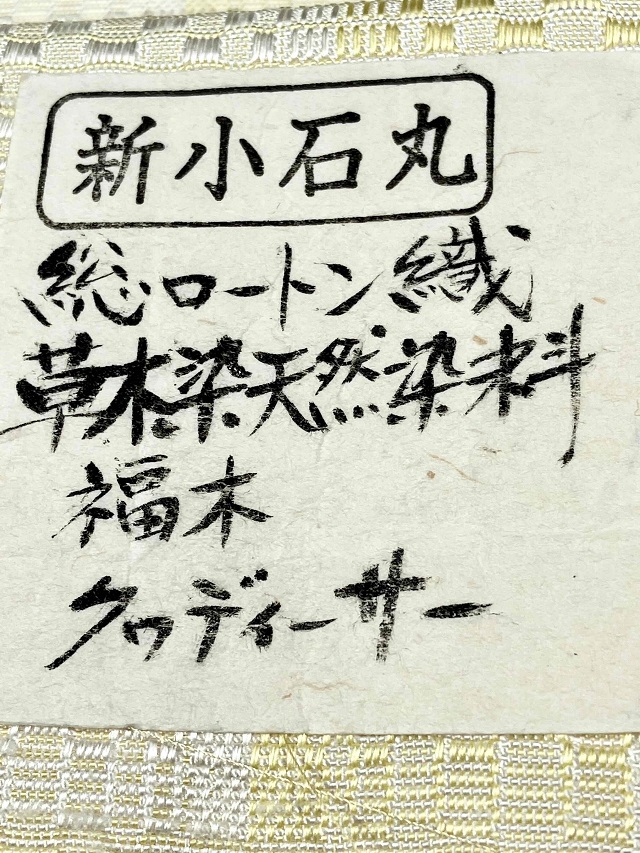 新小石丸
総ロートン織
草木染天然染料
福木
クワディーサー